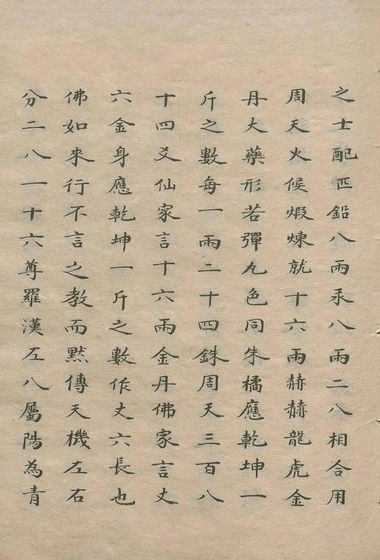 之士配匹鉛八兩汞八兩二八相合用
周天火候煅煉就十六兩赫赫龍虎金
丹大藥形若彈丸色同朱橘應乾坤一
斤之數每一兩二十四銖周天三百八
十四爻仙家言十六兩金丹佛家言丈
六金身應乾坤一斤之數作丈六長也
佛如來行不言之教而默傳天機左右
分二八一十六尊羅漢左八屬陽為青